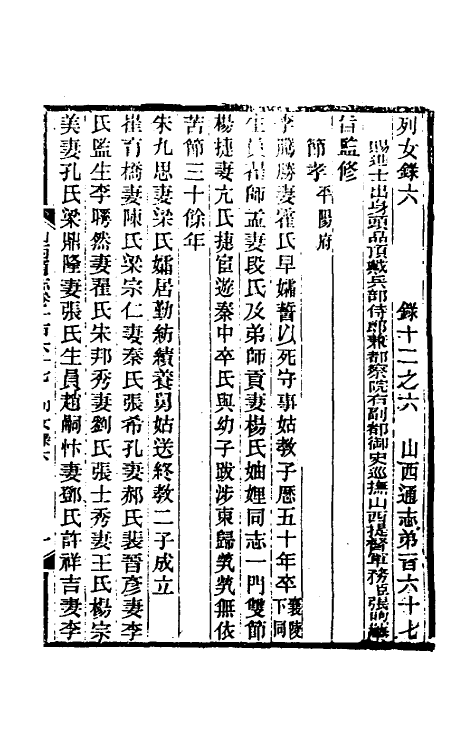 列女錄六 錄十二之六 山西通志弟百六十七
賜進士出身頭品頂戴兵部侍郎兼都察院右副都御史巡撫山西提督軍務臣張煦
旨監修
節孝平陽府
李騰勝妻霍氏早孀誓以死守事姑教子歷五十年卒襄陵下同
生員 師孟妻段氏及弟師貢妻楊氏妯娌同志一門雙節
楊捷妻亢氏捷宦遊秦中卒氏與幼子跋涉東歸煢煢無依
苦節三十餘年
朱九思妻梁氏孀居勤紡績養舅姑送終教二子成立
崔育橋妻陳氏梁宗仁妻秦氏張希孔妻郝氏裴晉彥妻李
氏監生李 然妻翟氏朱邦秀妻劉氏張士秀妻王氏楊宗
美妻孔氏梁鼎隆妻張氏生員趙嗣忭妻鄧氏許祥吉妻李
山西通志卷一百六十七 列女錄六 一